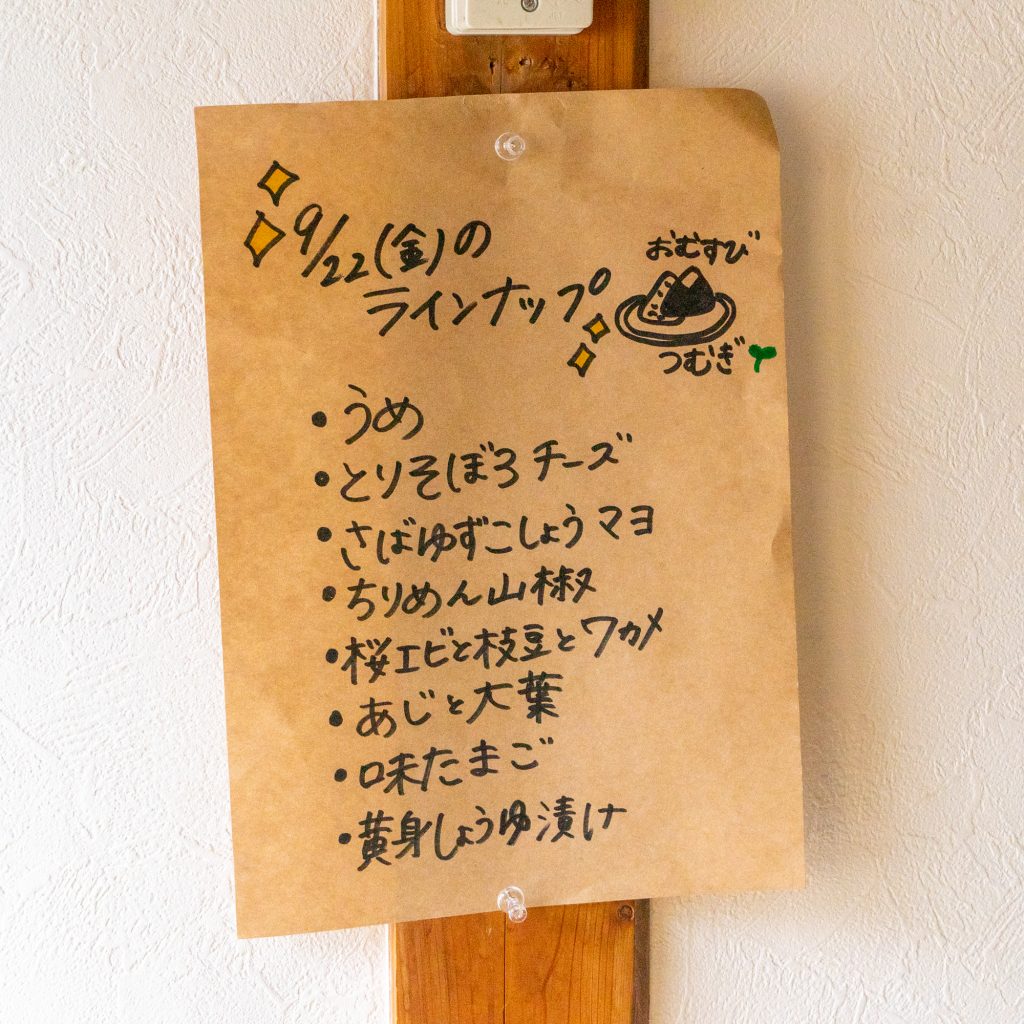 9/22(金)の
ラインナップ
おむすび
つむぎ
・うめ
・とりそぼろチーズ
・さばゆずこしょうマヨ
・ちりめん山椒
・桜エビと枝豆とワカメ
・あじと大葉
・味たまご
・黄身しょうゆ漬け